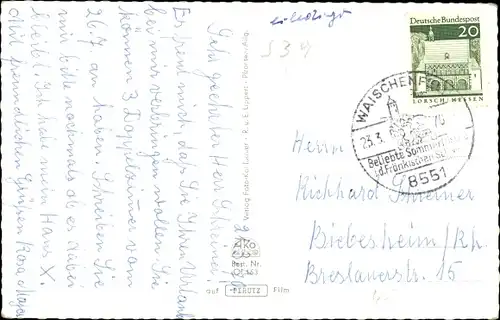 erledigt
53
Deutsche Bundespost
20
LORSCH/HESSEN
WAISCHENF
23.3. 70
Beliebte Sommer
i.d. Fränkischen
8551
Herrn
Richhard Schreiner
Biebesheim/Rh.
Breslauerstr. 15
Sehr geehrter Herr Schreiner!
Es freut mich, daß Sie Ihren Urlaub
bei mir verbringen wollen. Sie
können 3 Doppelzimmer vom
26.7 an haben. Schreiben Sie
mir bitte nochmals ob es dabei
bleibt. Ich habe mein Haus X.
Mit freundlichen Grüßen Rosa
Verlag Foto
Best. Nr.
auf PERUTZ Film